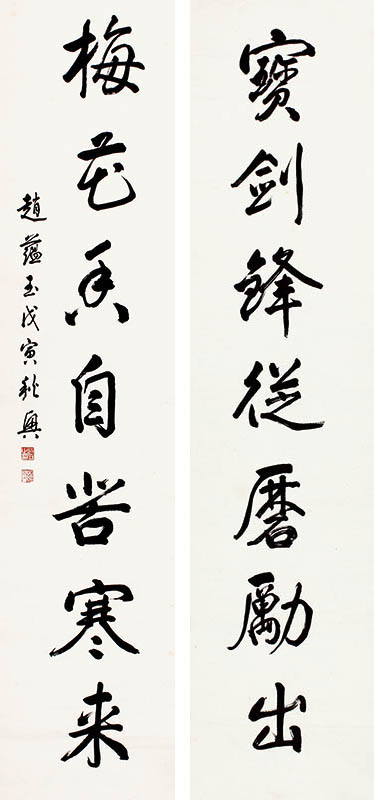 寶劍鋒從磨勵出
梅花香自苦寒来
趙蘊玉戊寅秋興